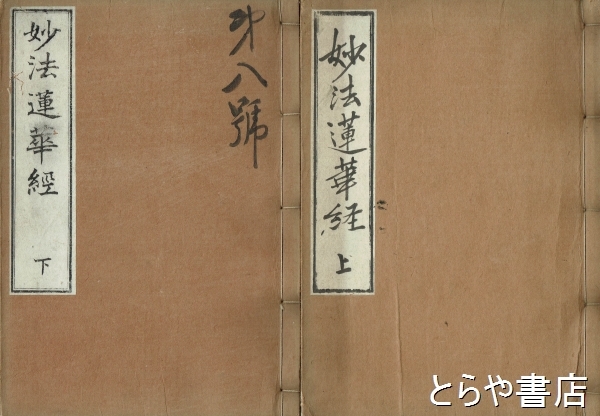 妙法蓮華経
上
妙法蓮華經
下
才八號
とらや書店